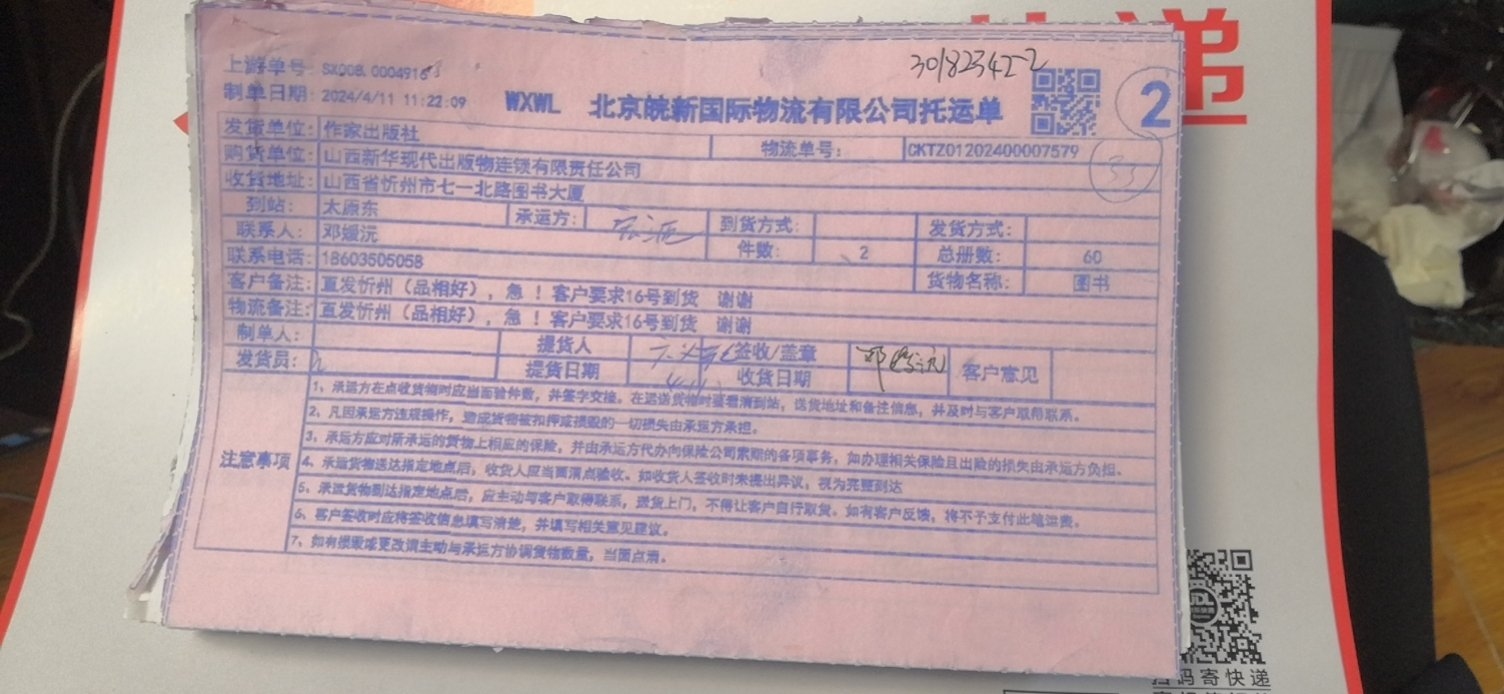 递
30182342-2
上游单号: SX008.0004916
制单日期: 2024/4/11 11:22:09 WXWL 北京皖新国际物流有限公司托运单 2
发货单位: 作家出版社 物流单号: CKTZ01202400007579
33
购货单位: 山西新华现代出版物连锁有限责任公司
收货地址: 山西省忻州市七一北路图书大厦
到站: 太原东 承运方: 到货方式: 发货方式:
联系人: 邓媛沅 件数: 2 总册数: 60
联系电话: 18603505058 货物名称: 图书
客户备注: 直发忻州（品相好），急！客户要求16号到货 谢谢
物流备注: 直发忻州（品相好），急！客户要求16号到货 谢谢
制单人: 提货人 签收/盖章
发货员: 提货日期 收货日期 邓媛沅 客户意见
注意事项
1、承运方在点收货物时应当面验件数，并签字交接。在运送货物时查看清到站，送货地址和备注信息，并及时与客户取得联系。
2、凡因承运方违规操作，造成货物被扣押或损毁的一切损失由承运方承担。
3、承运方应对所承运的货物上相应的保险，并由承运方代办向保险公司索赔的各项事务，如办理相关保险且出险的损失由承运方负担。
4、承运货物送达指定地点后，收货人应当面清点验收。如收货人签收时未提出异议，视为完整到达
5、承运货物到达指定地点后，应主动与客户取得联系，送货上门，不得让客户自行取货。如有客户反馈，将不予支付此笔运费。
6、客户签收时应将签收信息填写清楚，并填写相关意见建议。
7、如有损毁或更改请主动与承运方协调货物数量，当面点清。
扫码寄快递